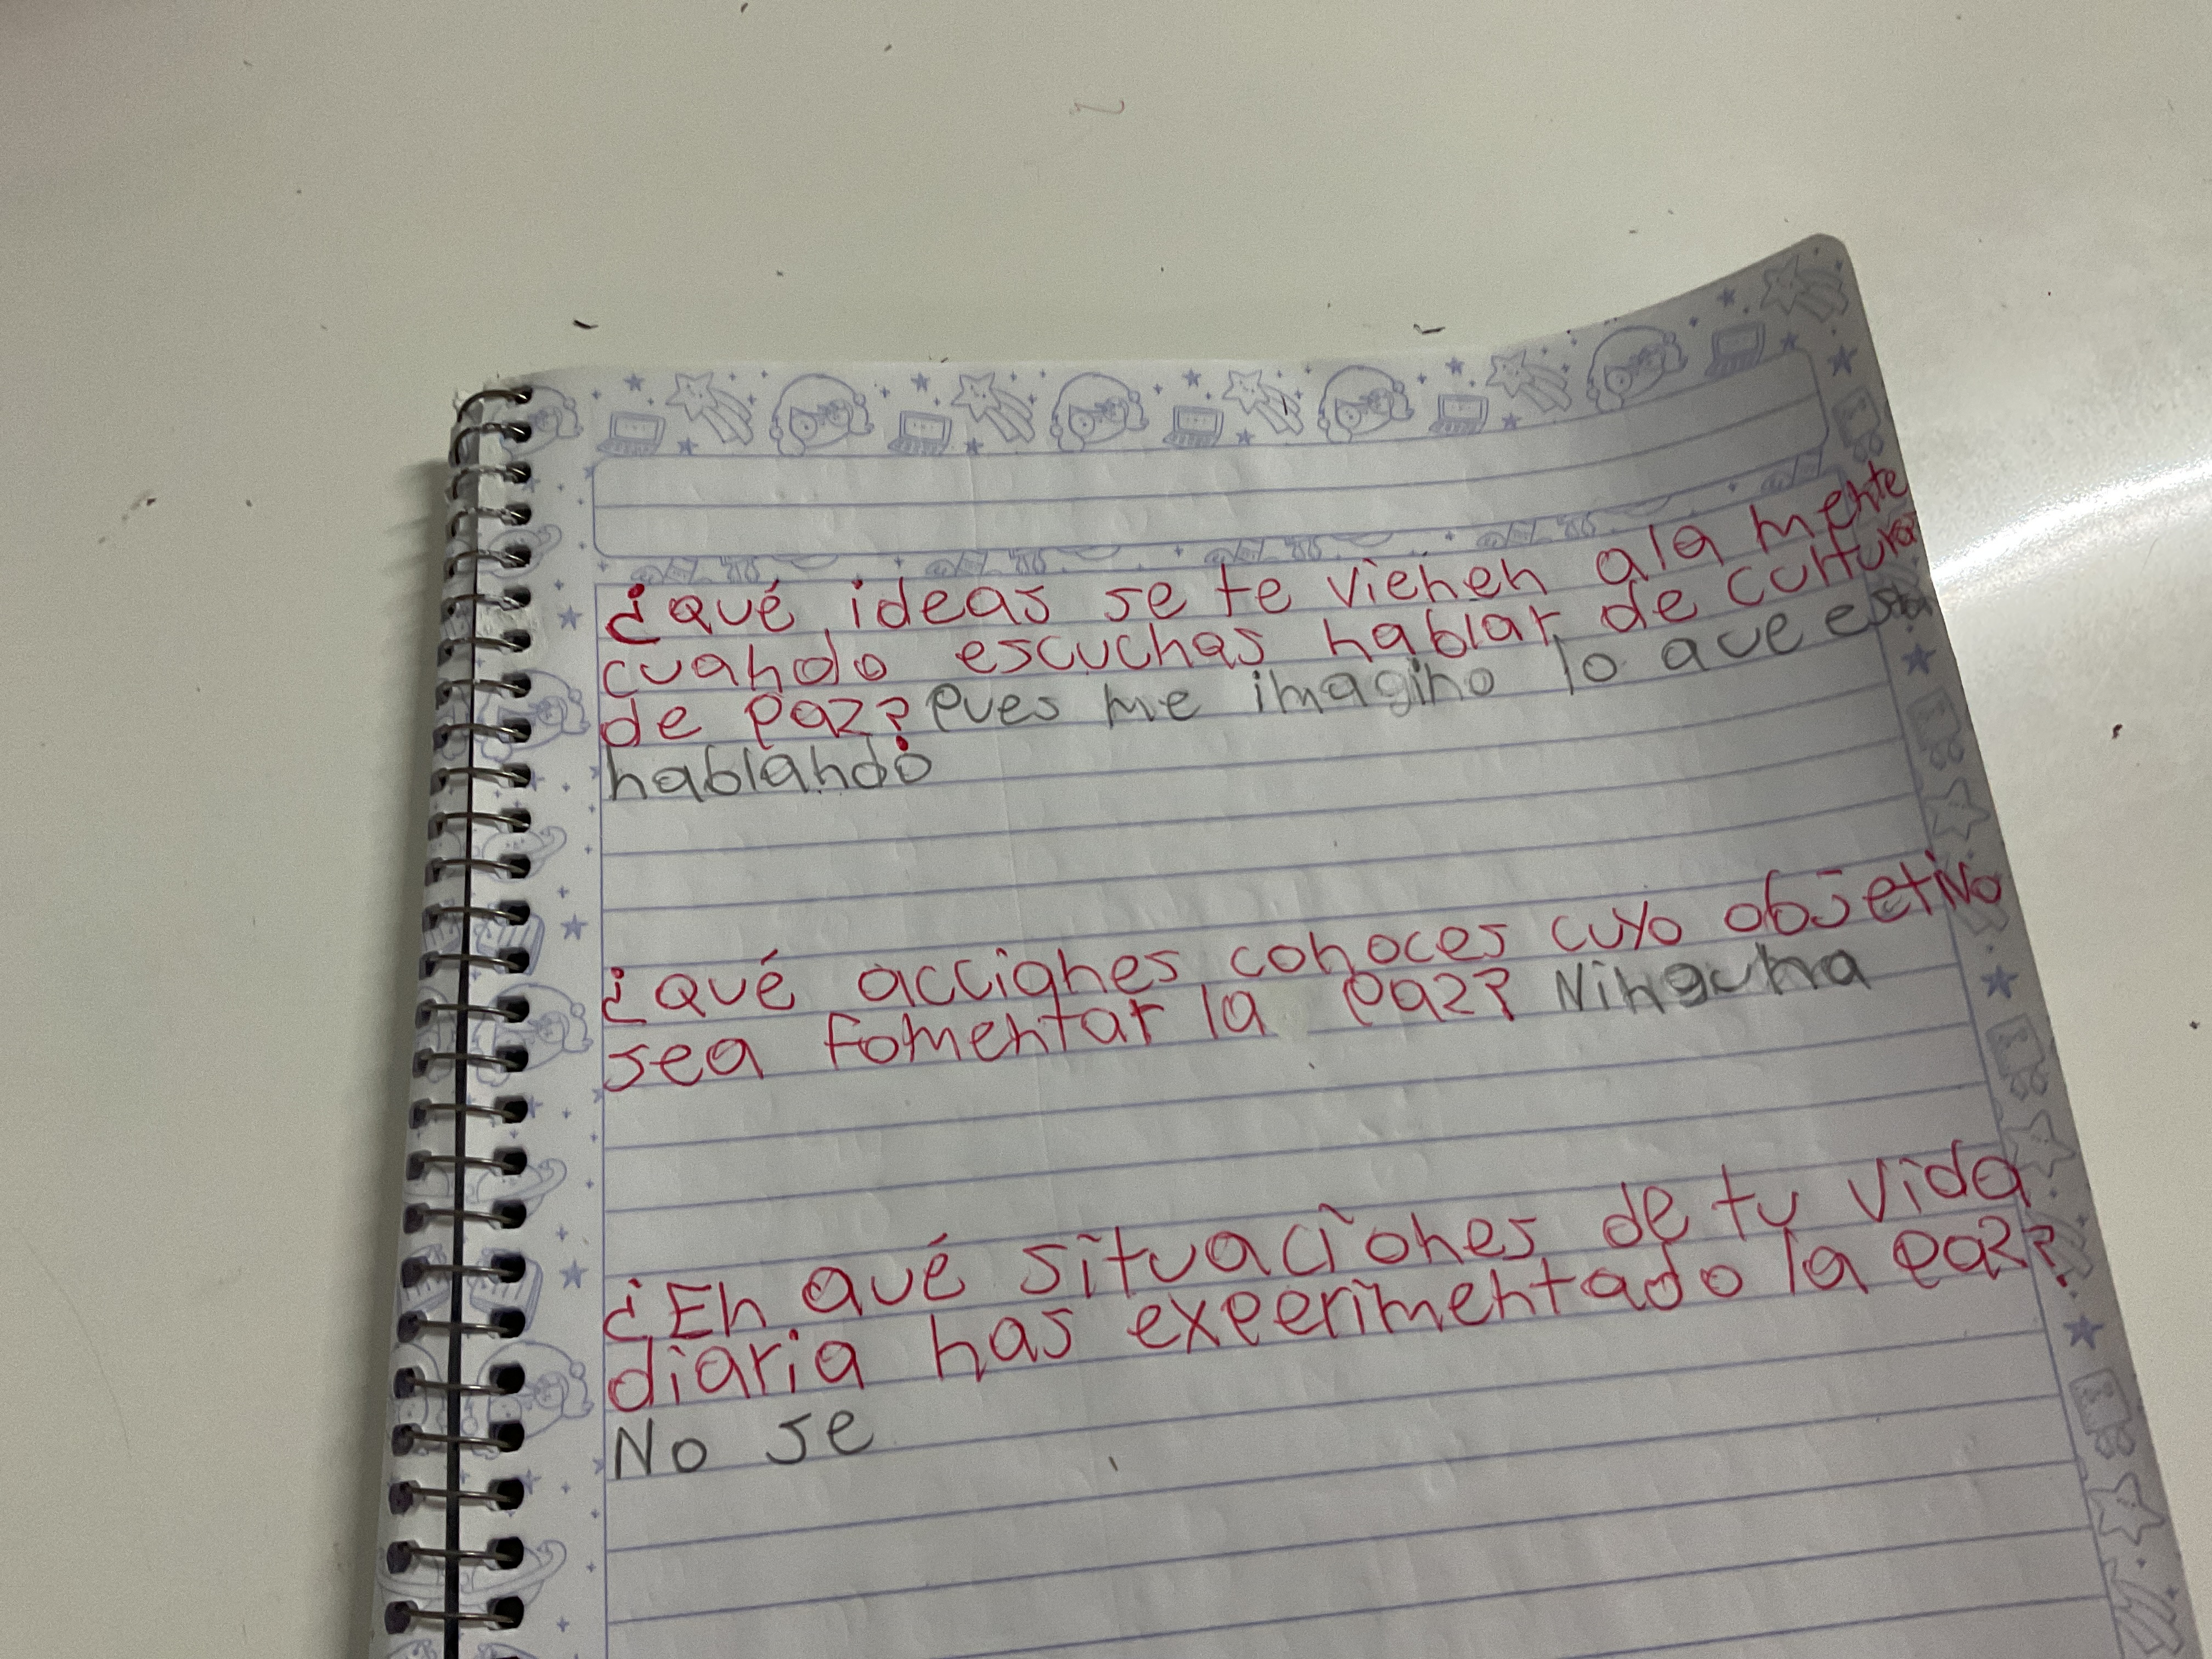 ¿qué ideas se te vienen ala mente
cuando escuchas hablar de cultura
de paz? pues me imagino lo que estan
hablando
¿qué acciones conoces cuyo objetivo
sea fomentar la paz? Ninguna
¿En qué situaciones de tu vida
diaria has experimentado la paz?
No se